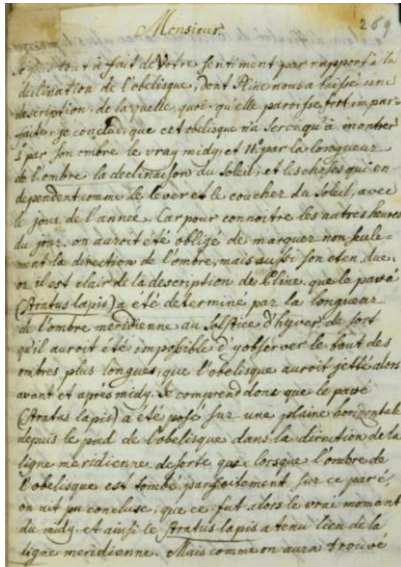 269
Monsieur
Je suis tout à fait de Votre sentiment par rapport à la
destination de l'obélisque, dont Pline nous a laissé une
description, de laquelle, quoi-qu'elle paroisse fort impar-
faite, je conclud, que cet obelisque n'a servi qu'à montrer
1° par son ombre le vray midy, et 11° par la longueur
de l'ombre la declinaison du Soleil, et les choses qui en
dependent comme le lever et le coucher du Soleil, avec
le jour de l'année. Car pour connoitre les autres heures
du jour, on auroit été obligé de marquer non seule-
ment la direction de l'ombre, mais aussi son eten due.
or il est clair de la description de Pline, que le pavé
(Stratus lapis) a été determiné par la longueur
de l'ombre meridienne au Solstice d'hyver de sort
qu'il auroit été impossible d'y observer le bout des
ombres plus longues, que l'obelisque auroit jetté alors
avant et après midy. Je comprend donc que le pavé
(Stratus lapis) a été posé sur une plaine horizontale
depuis le pied de l'obelisque dans la direction de la
ligne meridienne de sorte que lorsque l'ombre de
l'obelisque est tombé parfaitement sur ce pavé
on ait pu conclure, que ce fut alors le vrai moment
du midy. et ainsi le Stratus lapis a tenu lieu de la
ligne meridienne. Mais comme on aura trouvé